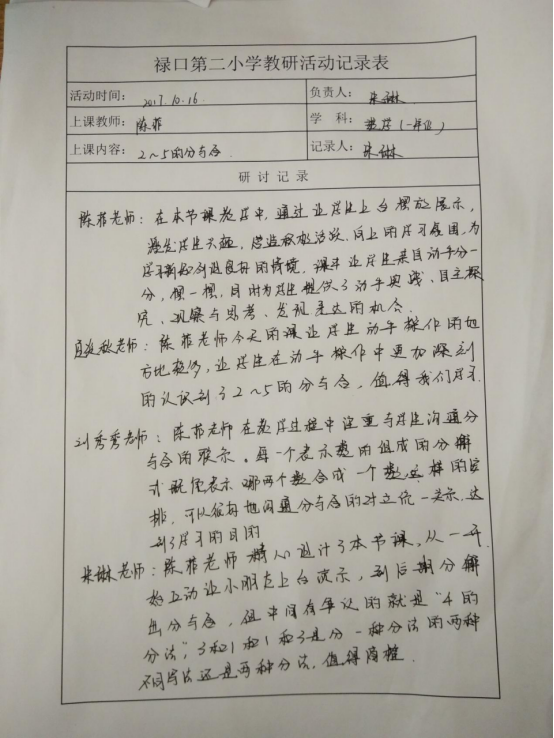 禄口第二小学教研活动记录表
活动时间: 2017.10.16
负责人: 朱琳
上课教师: 陈菲
学 科: 数学(一年级)
上课内容: 2~5的分与合.
记录人: 朱琳
研 讨 记 录
陈菲老师: 在本节课教学中,通过让学生上台摆放展示,
激发学生兴趣,营造积极活跃、向上的学习氛围,为
学习新知创造良好的情境,课中让学生亲自动手分一
分,摆一摆,同时为学生提供了动手实践、自主探
究、观察与思考、发现表达的机会.
秋老师: 陈菲老师今天的课让学生动手操作的地
方比较多,让学生在动手操作中更加深刻
的认识到了2~5的分与合,值得我们学习.
刘秀秀老师: 陈菲老师在教学过程中注重与学生沟通分
与合的联系.每一个表示数的组成的分解
式既能表示哪两个数合成一个数,这样的安
排,可以很好地沟通分与合的对立统一关系,达
到了学习的目的
朱琳老师: 陈菲老师精心设计了本节课,从一开
始互动让小朋友上台演示,到后期分解
出分与合,但中间有争议的就是“4的
分法”,3和1和1和3是分一种分法的两种
不同写法还是两种分法,值得商榷.